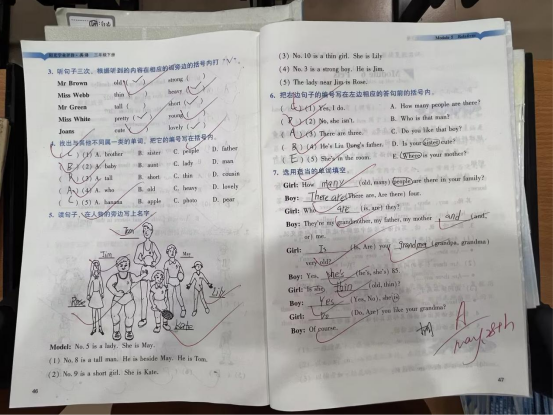 Module 2
3. 听句子三次，根据听到的内容在相应的框旁边的括号内打“√”。
Mr Brown old( ) strong ( )
Miss Webb thin( ) heavy( )
Mr Green tall ( ) short( )
Miss White pretty( ) young( )
Joans cute( ) lovely( )
4. 找出与其他不同属一类的单词，把它的编号写在括号内。
( C ) (1) A. brother B. sister C. people D. father
( B ) (2) A. baby B. aunt C. lady D. man
(3) A. tall B. short C. thin D. cousin
( A ) (4) A. who B. old C. heavy D. lovely
( C ) (5) A. banana B. apple C. photo D. pear
5. 读句子，在人物的旁边写上名字。
Tom
Jim
May
Rose
Lily
Kate
Model: No. 5 is a lady. She is May.
(1) No. 8 is a tall man. He is beside May. He is Tom.
(2) No. 9 is a short girl. She is Kate.
46
(3) No. 10 is a thin girl. She is Lily
(4) No. 3 is a strong boy. He is Jim.
(5) The lady near Jim is Rose.
6. 把右边句子的编号写在左边相应的答句前的括号内。
( C ) (1) Yes, I do. A. How many people are there?
( D ) (2) No, she isn't. B. Who is that man?
( A ) (3) There are three. C. Do you like that boy?
( B ) (4) He's Liu Dang's father. D. Is your sister cute?
( E ) (5) She's in the room. E. Where is your mother?
7. 选用适当的单词填空。
Girl: How many (old, many) people are there in your family?
Boy: There are (There are, Are there) four.
Girl: Who are (is, are) they?
Boy: They're my grandmother, my father, my mother and (and,
or) me.
Girl: Is (Is, Are) your grandma (grandpa, grandma)
very old?
Boy: Yes, she's (he's, she's) 85.
Girl: Is she thin (old, thin)?
Boy: Yes (Yes, No), she is
Girl: Do (Do, Are) you like your grandma?
Boy: Of course.
A
May 28th
47